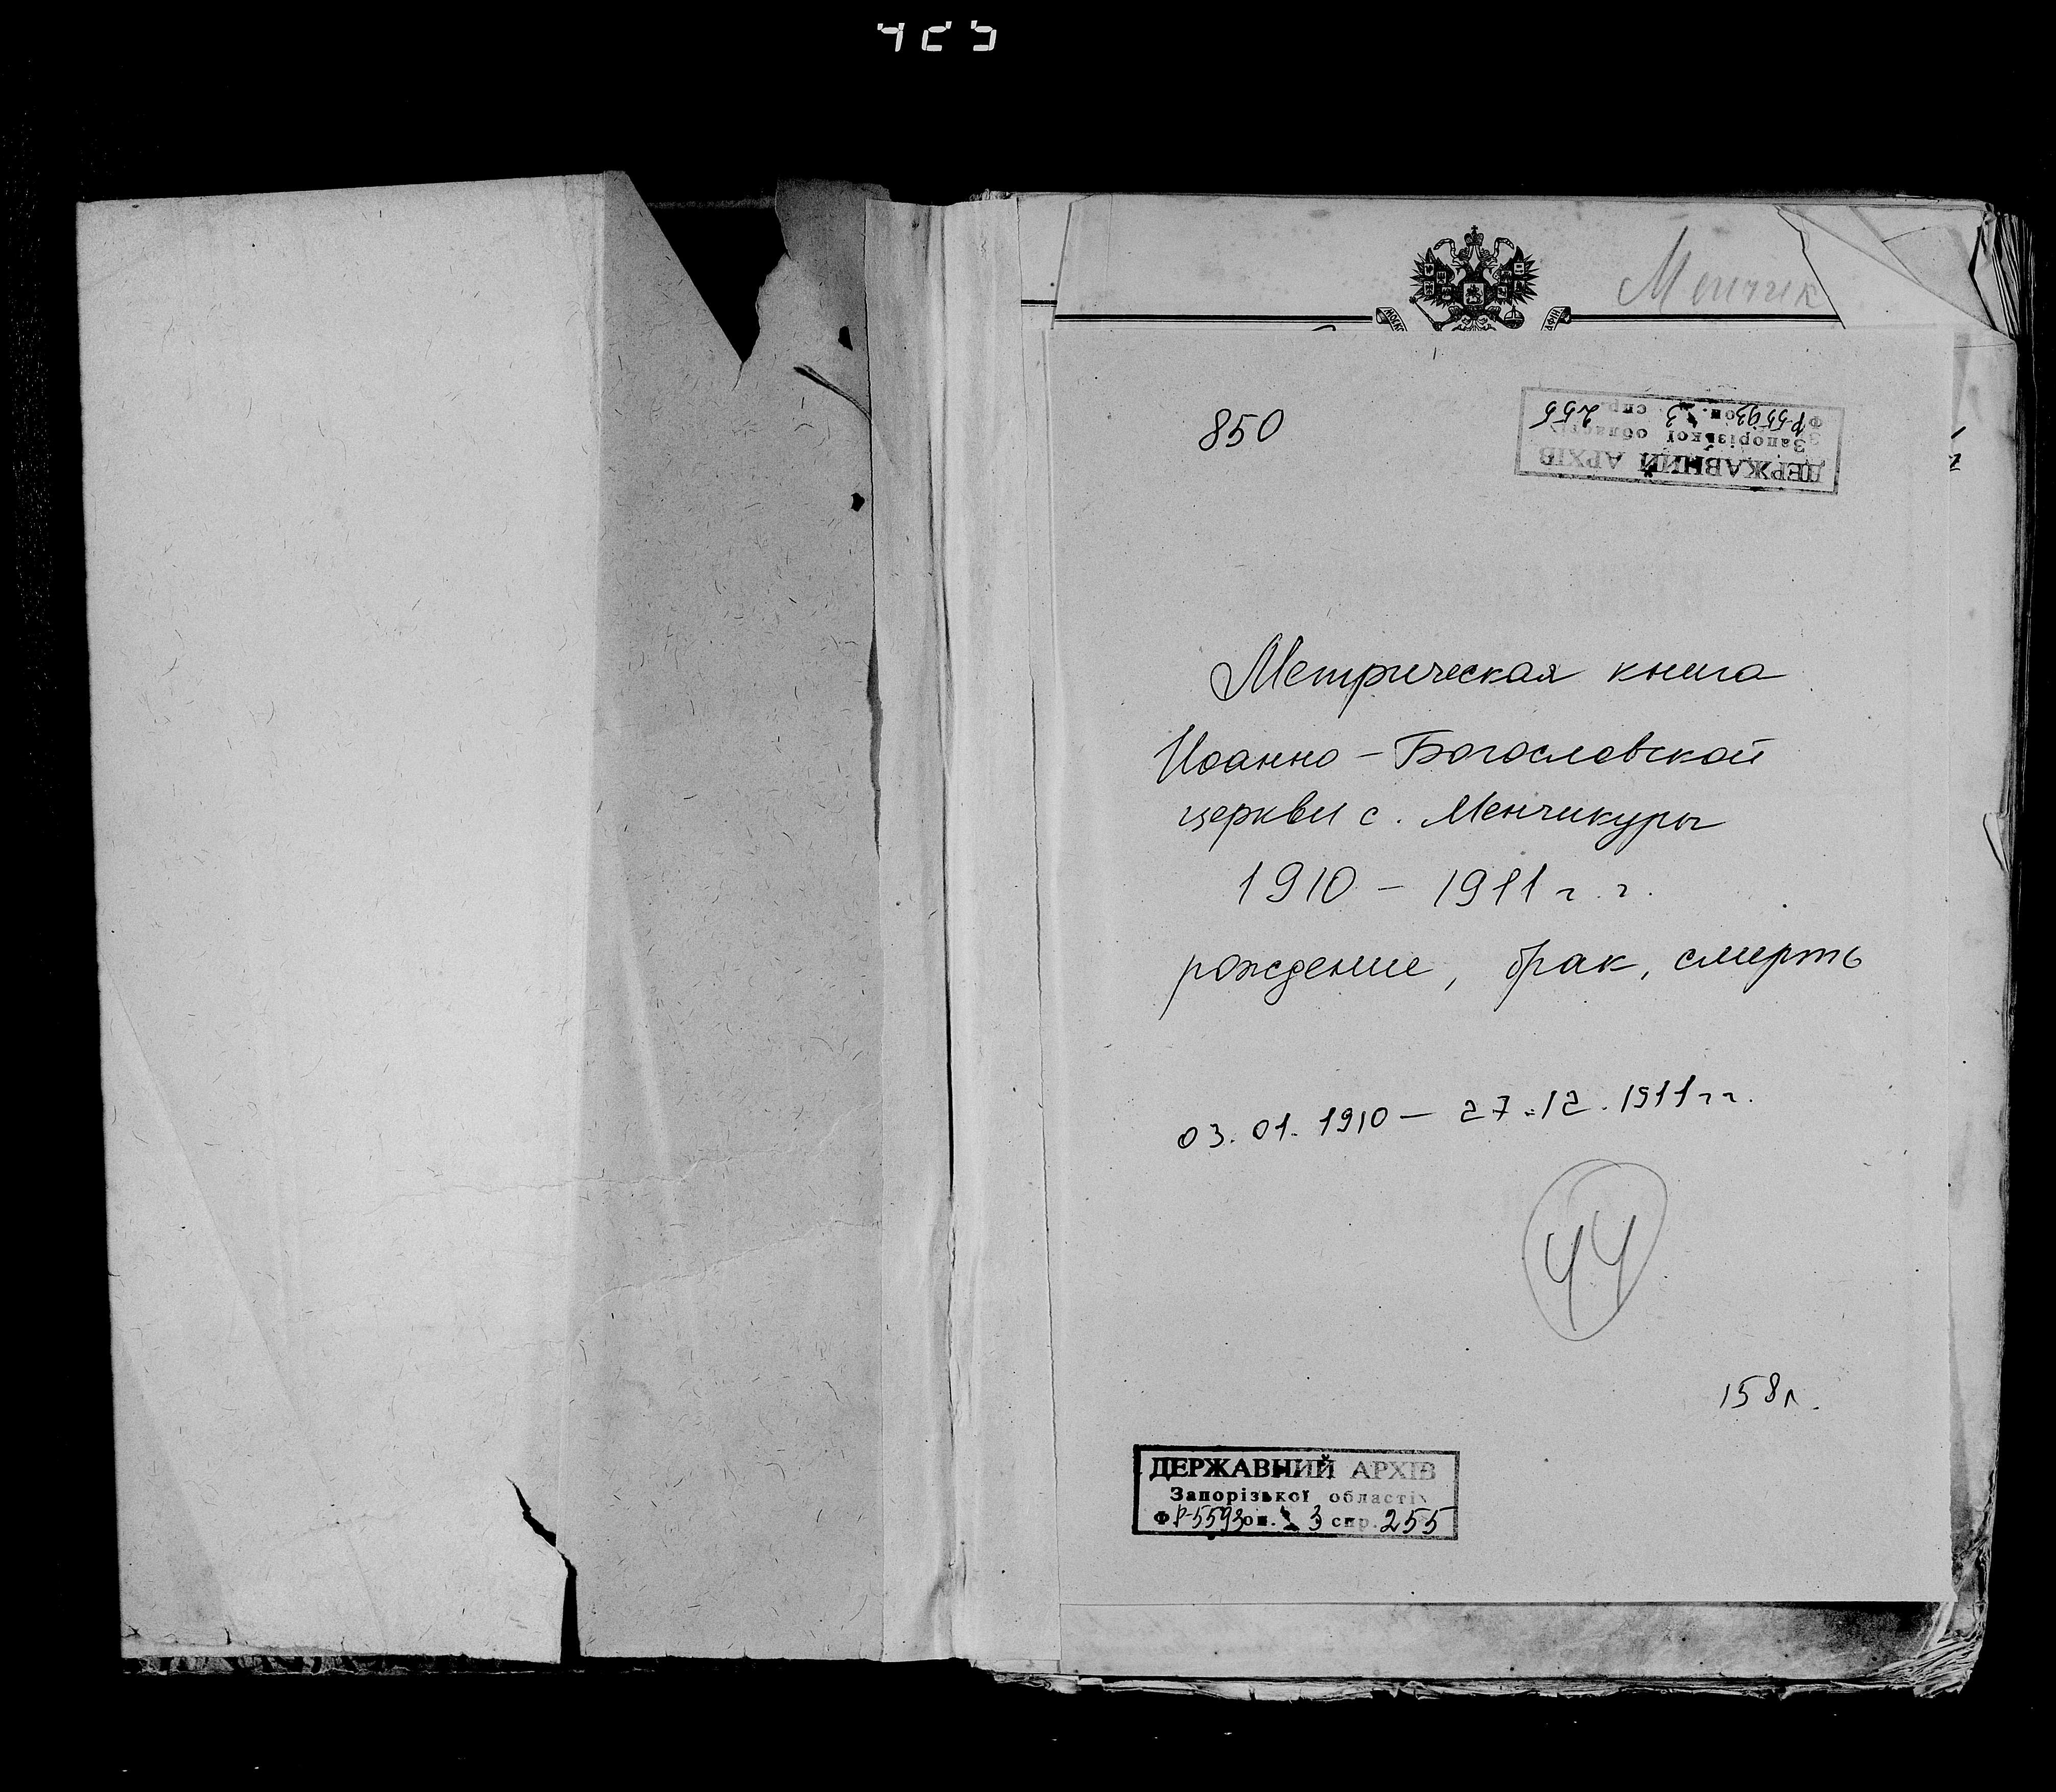 Менчик
850
ДЕРЖАВНИЙ АРХІВ
Запорізької області
Ф. Р-5593 оп. 3 спр. 255
Метрическая книга
Иоанно - Богословской
церкви с. Менчикуры
1910 - 1911 г. г.
рождение, брак, смерть
03. 01. 1910 - 27. 12. 1911 гг.
44
158 л.
ДЕРЖАВНИЙ АРХІВ
Запорізької області
Ф Р-5593 оп. 3 спр. 255